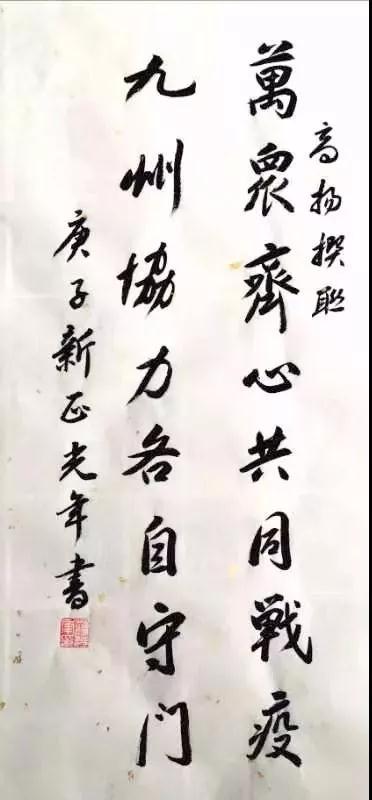 高扬撰联
萬眾齊心共同戰疫
九州協力各自守门
庚子新正光年書